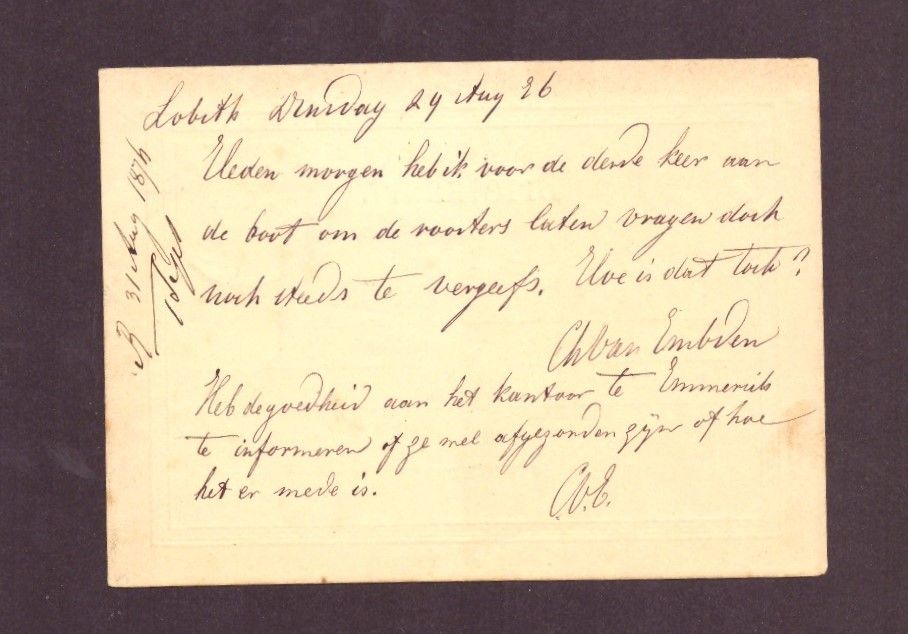 Lobith Dinsdag 29 Aug 76
Heden morgen heb ik voor de derde keer aan
de boot om de roosters laten vragen doch
noch steeds te vergeefs. Hoe is dat toch?
Ch Van Embden
Heb de goedheid aan het kantoor te Emmerik
te informeren of ze wel afgezonden zyn of hoe
het er mede is.
C.v.E.
R 31 Aug 1876